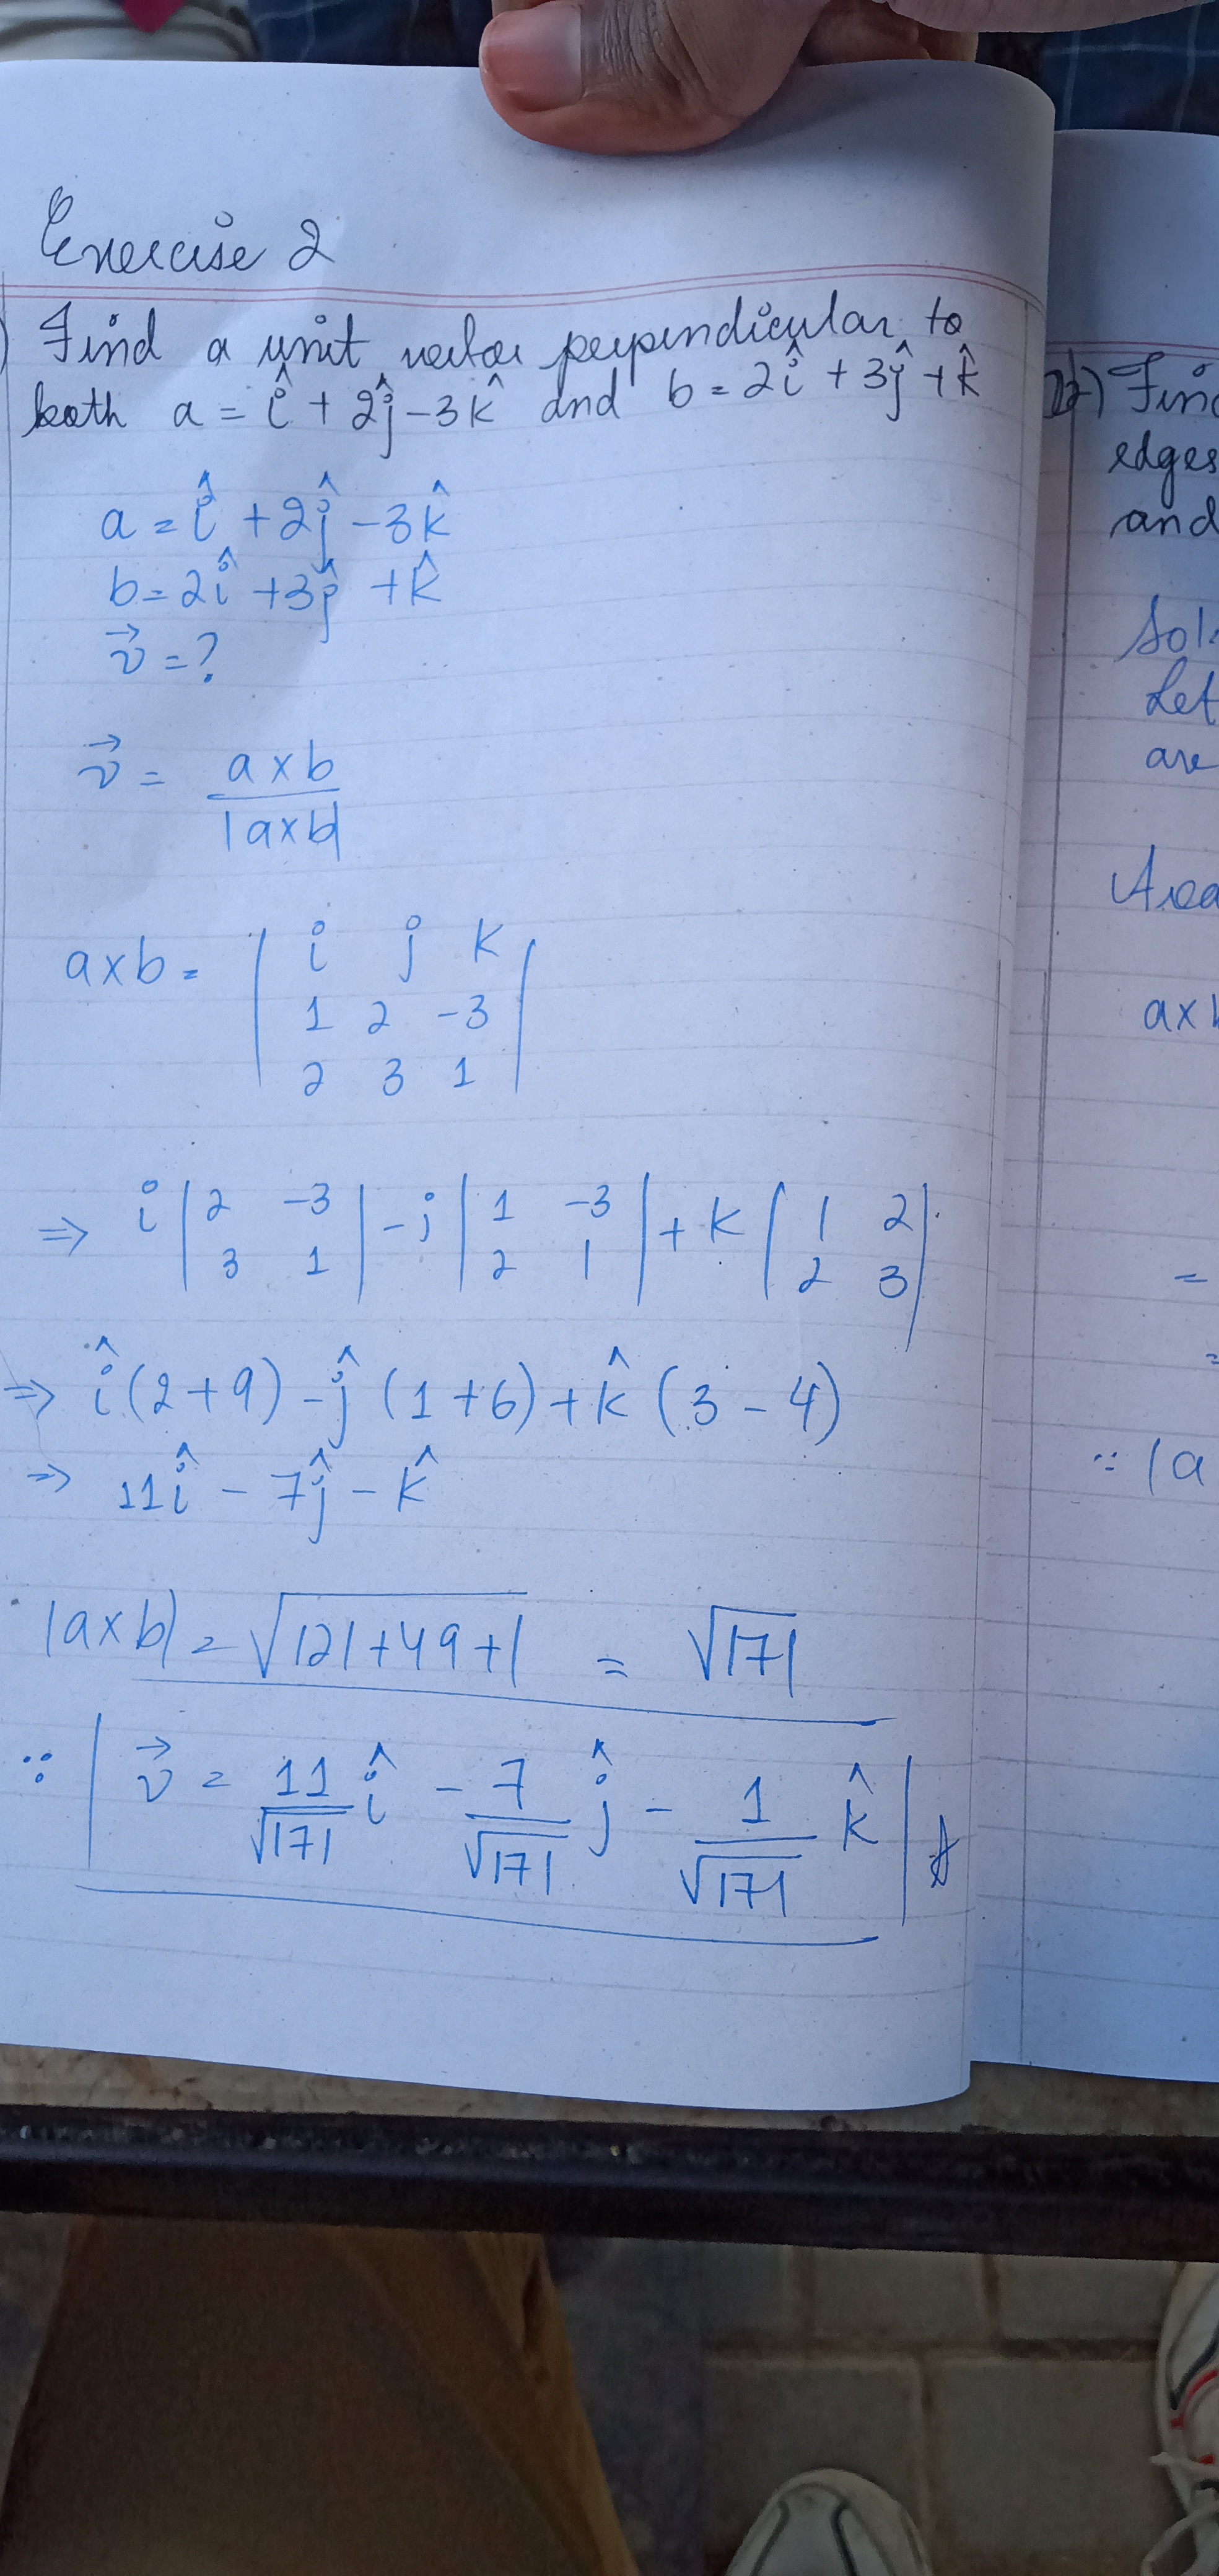 Exercise 2
) Find a unit vector perpendicular to
both a = î + 2ĵ - 3k̂ and b = 2î + 3ĵ + k̂
a = î + 2ĵ - 3k̂
b = 2î + 3ĵ + k̂
v⃗ = ?
v⃗ = a x b / |a x b|
a x b = | i j k |
| 1 2 -3 |
| 2 3 1 |
⇒ i | 2 -3 | - j | 1 -3 | + k | 1 2 |
| 3 1 | | 2 1 | | 2 3 |
⇒ î (2 + 9) - ĵ (1 + 6) + k̂ (3 - 4)
⇒ 11î - 7ĵ - k̂
|a x b| = √121 + 49 + 1 = √171
∵ v⃗ = 11/√171 î - 7/√171 ĵ - 1/√171 k̂
Find
edges
and
Sol.
Let
are
Area
a x b
=
=
∵ |a